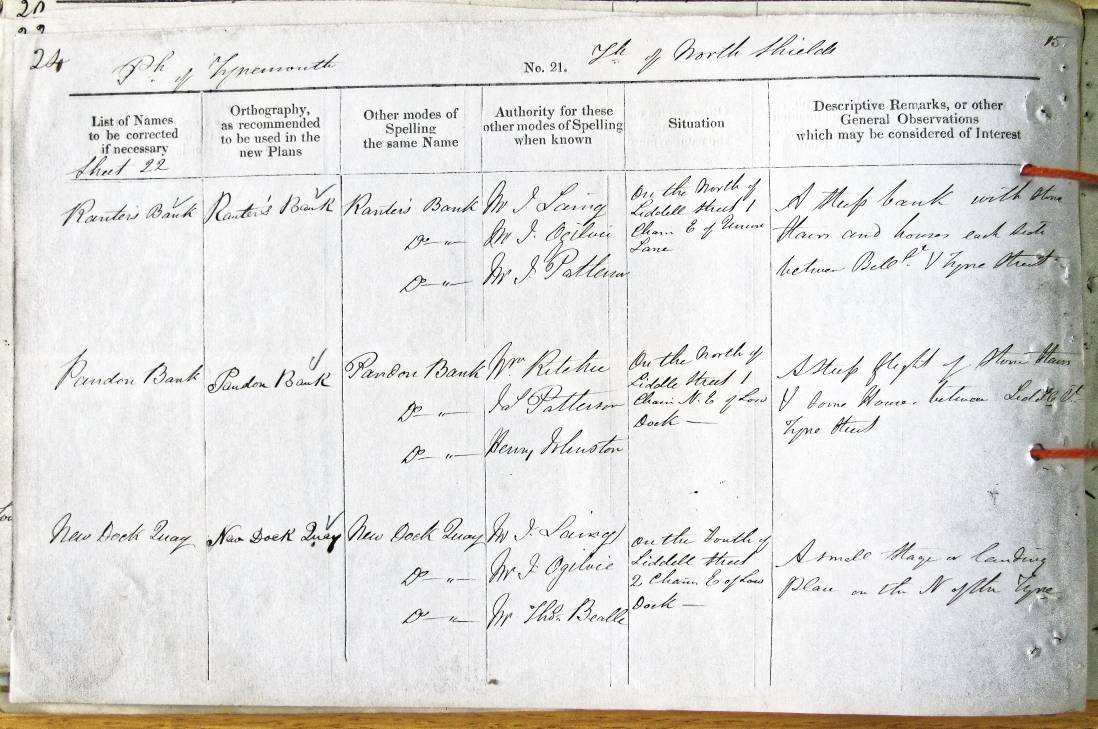 20
22
24
Ph of Tynemouth
No. 21.
Th of North Shields
15.
List of Names
to be corrected
if necessary
Orthography,
as recommended
to be used in the
new Plans
Other modes of
Spelling
the same Name
Authority for these
other modes of Spelling
when known
Situation
Descriptive Remarks, or other
General Observations
which may be considered of Interest
Sheet 22
Ranter's Bank
Ranter's Bank
Ranter's Bank
Do "
Do "
Mr J. Laing
Mr J. Ogilvie
Mr J. Patterson
On the North of
Liddell Street 1
Chain E of Union
Lane
A Steep bank with Stone
Stairs and houses each side
between Bell St & Tyne Street
Pandon Bank
Pandon Bank
Pandon Bank
Do "
Do "
Wm Ritchie
Js Patterson
Henry Johnston
On the North of
Liddle Street 1
Chain N.E of Low
Dock
A Steep flight of Stone Stairs
& some Houses between Liddle St
Tyne Street
New Dock Quay
New Dock Quay
New Dock Quay
Do "
Do "
Mr J. Laing
Mr J. Ogilvie
Mr Thos Bealle
On the South of
Liddell Street
2 Chains E of Low
Dock
A small Stage or landing
Place on the N of the Tyne